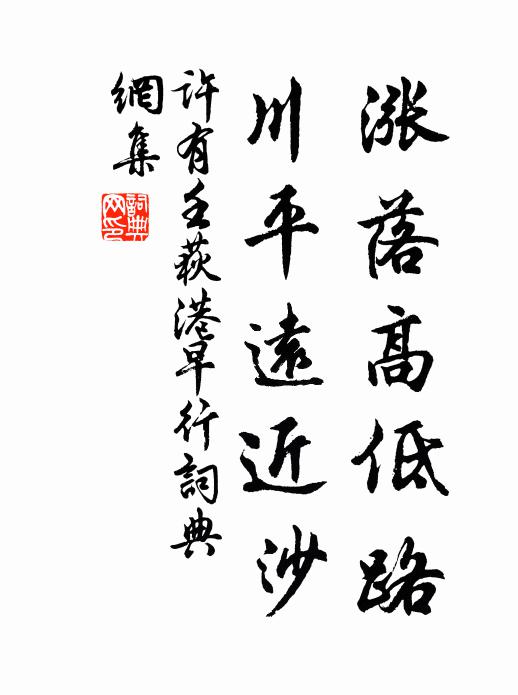 漲落高低路
川平遠近沙
許有壬荻港早行詞典
網集
詞典網印